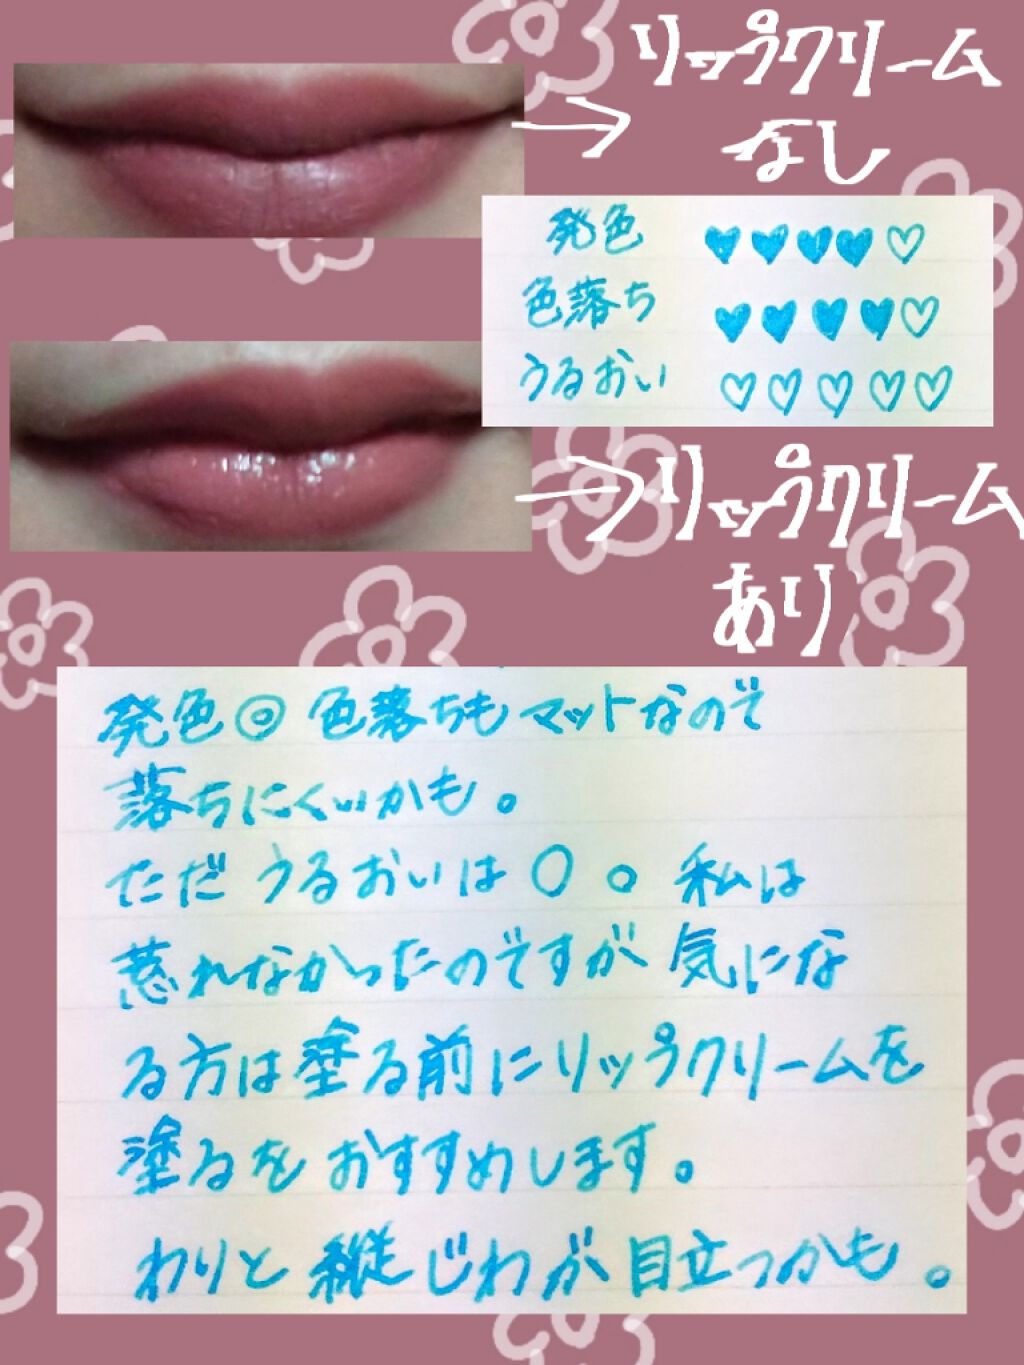 リップクリーム
なし
発色 ♥♥♥♥♡
色落ち ♥♥♥♥♡
うるおい ♡♡♡♡♡
リップクリーム
あり
発色◎ 色落ちもマットなので
落ちにくいかも。
ただうるおいは〇。私は
荒れなかったのですが気にな
る方は塗る前にリップクリームを
塗るをおすすめします。
わりと縦じわが目立つかも。